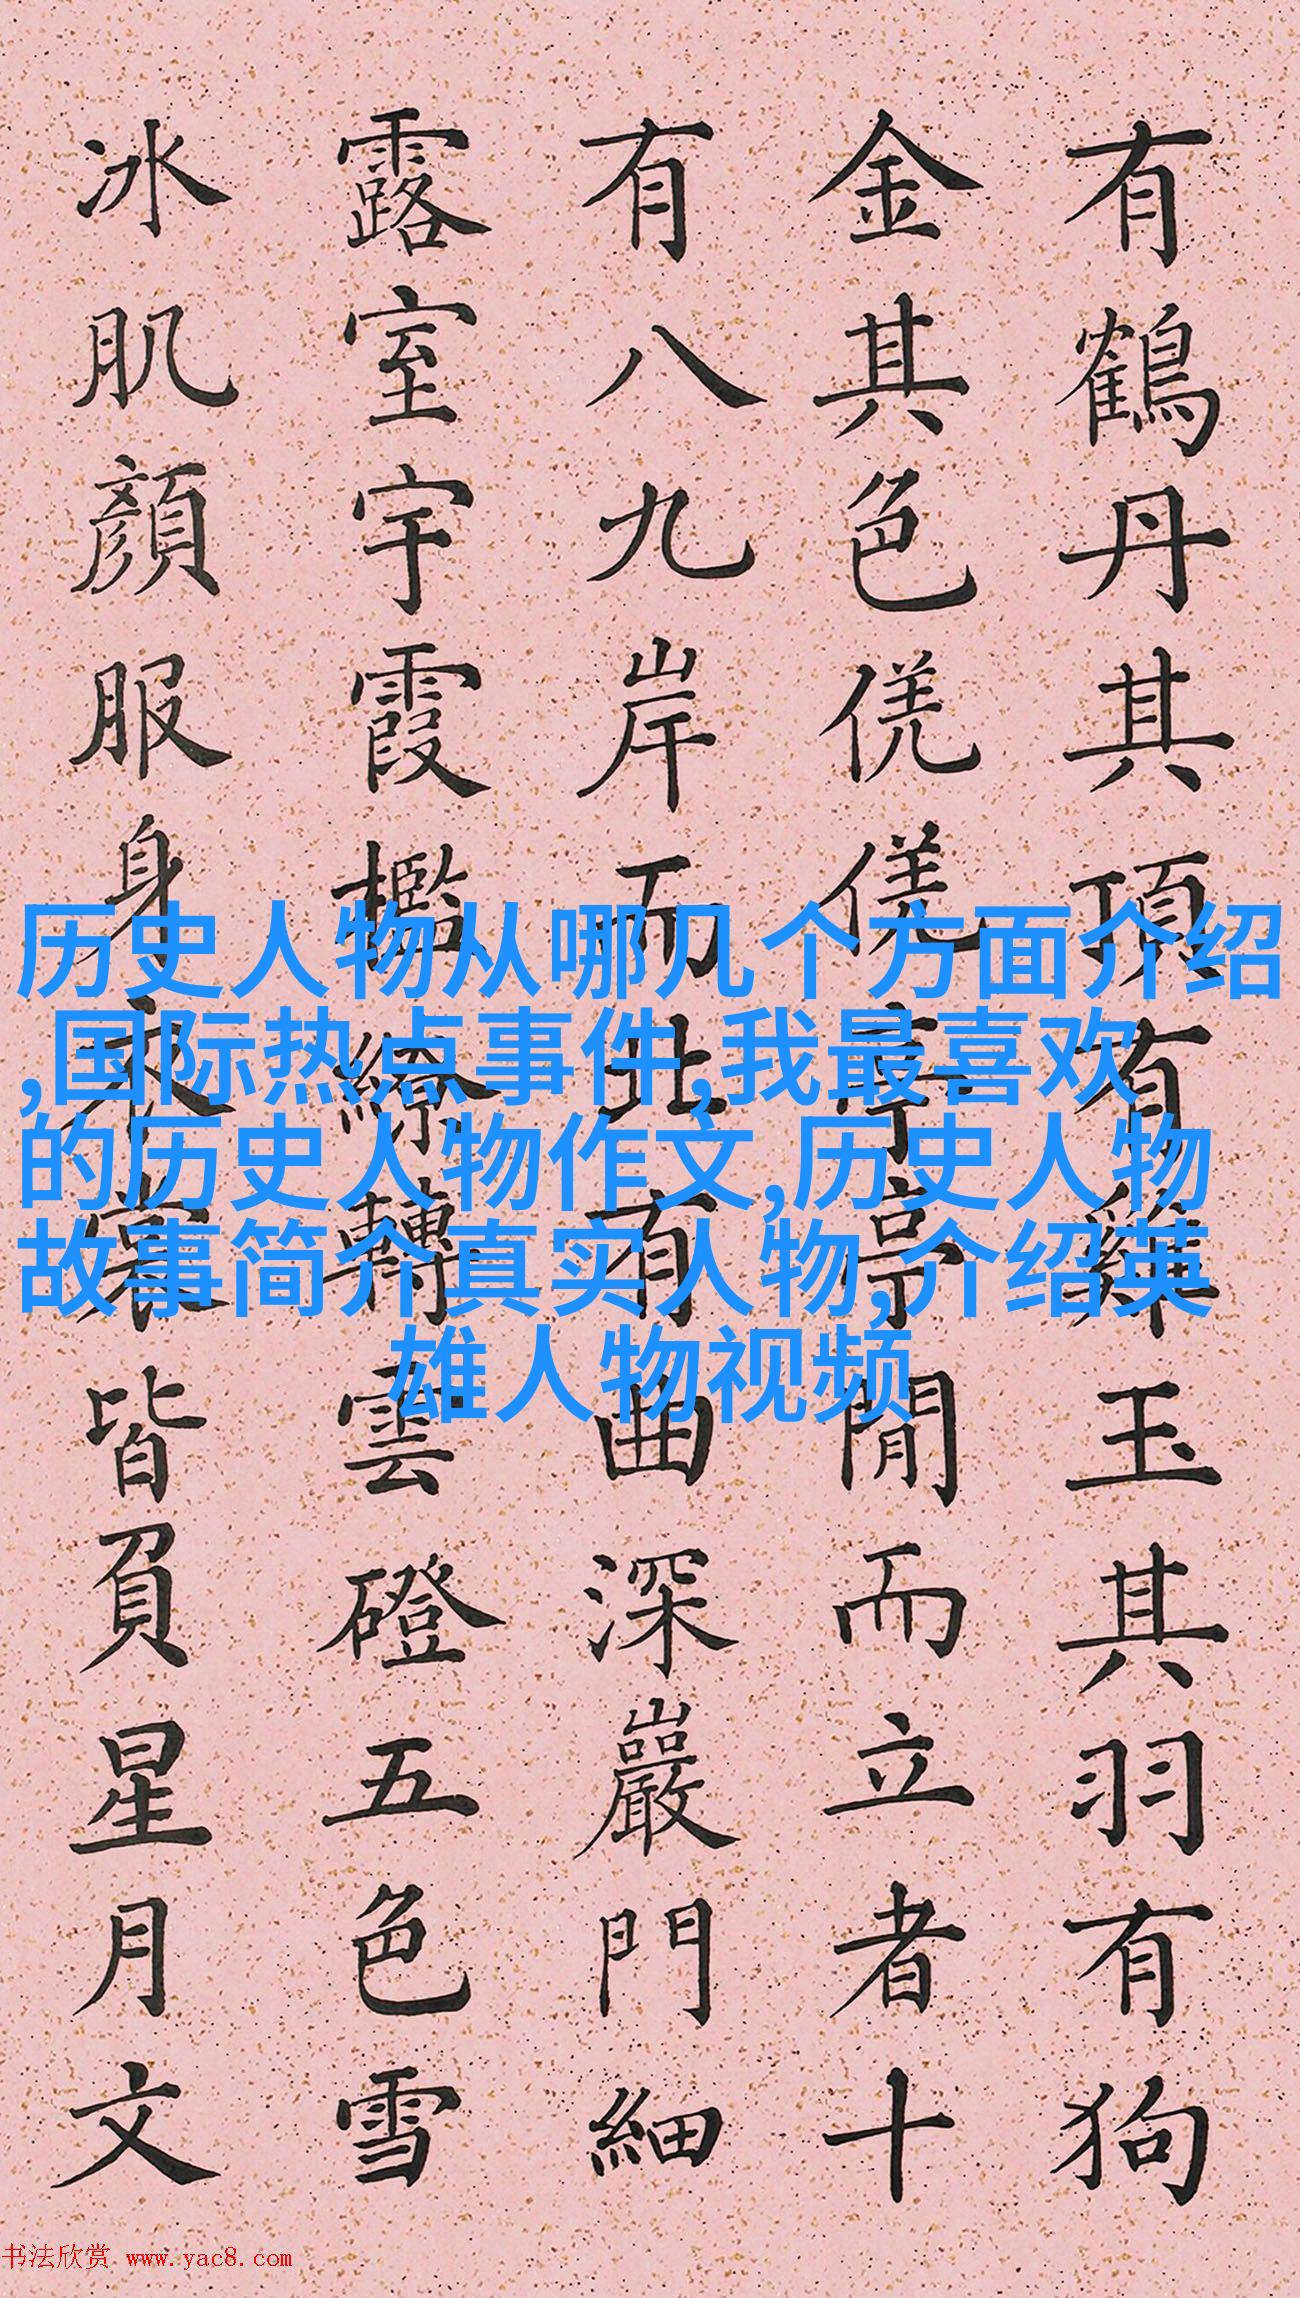 有鶴丹其頂有雞玉其羽有狗
金其色亭亭閒而立者十
有八九岸而北有曲深巖門細
露室宇霞檻繚轉雲磴五色雪
冰肌顏服身衣裳皆負星月文
历史人物从哪几个方面介绍
,国际热点事件,我最喜欢
的历史人物作文,历史人物
故事简介真实人物,介绍英
雄人物视频
书法欣赏 www.yac8.com